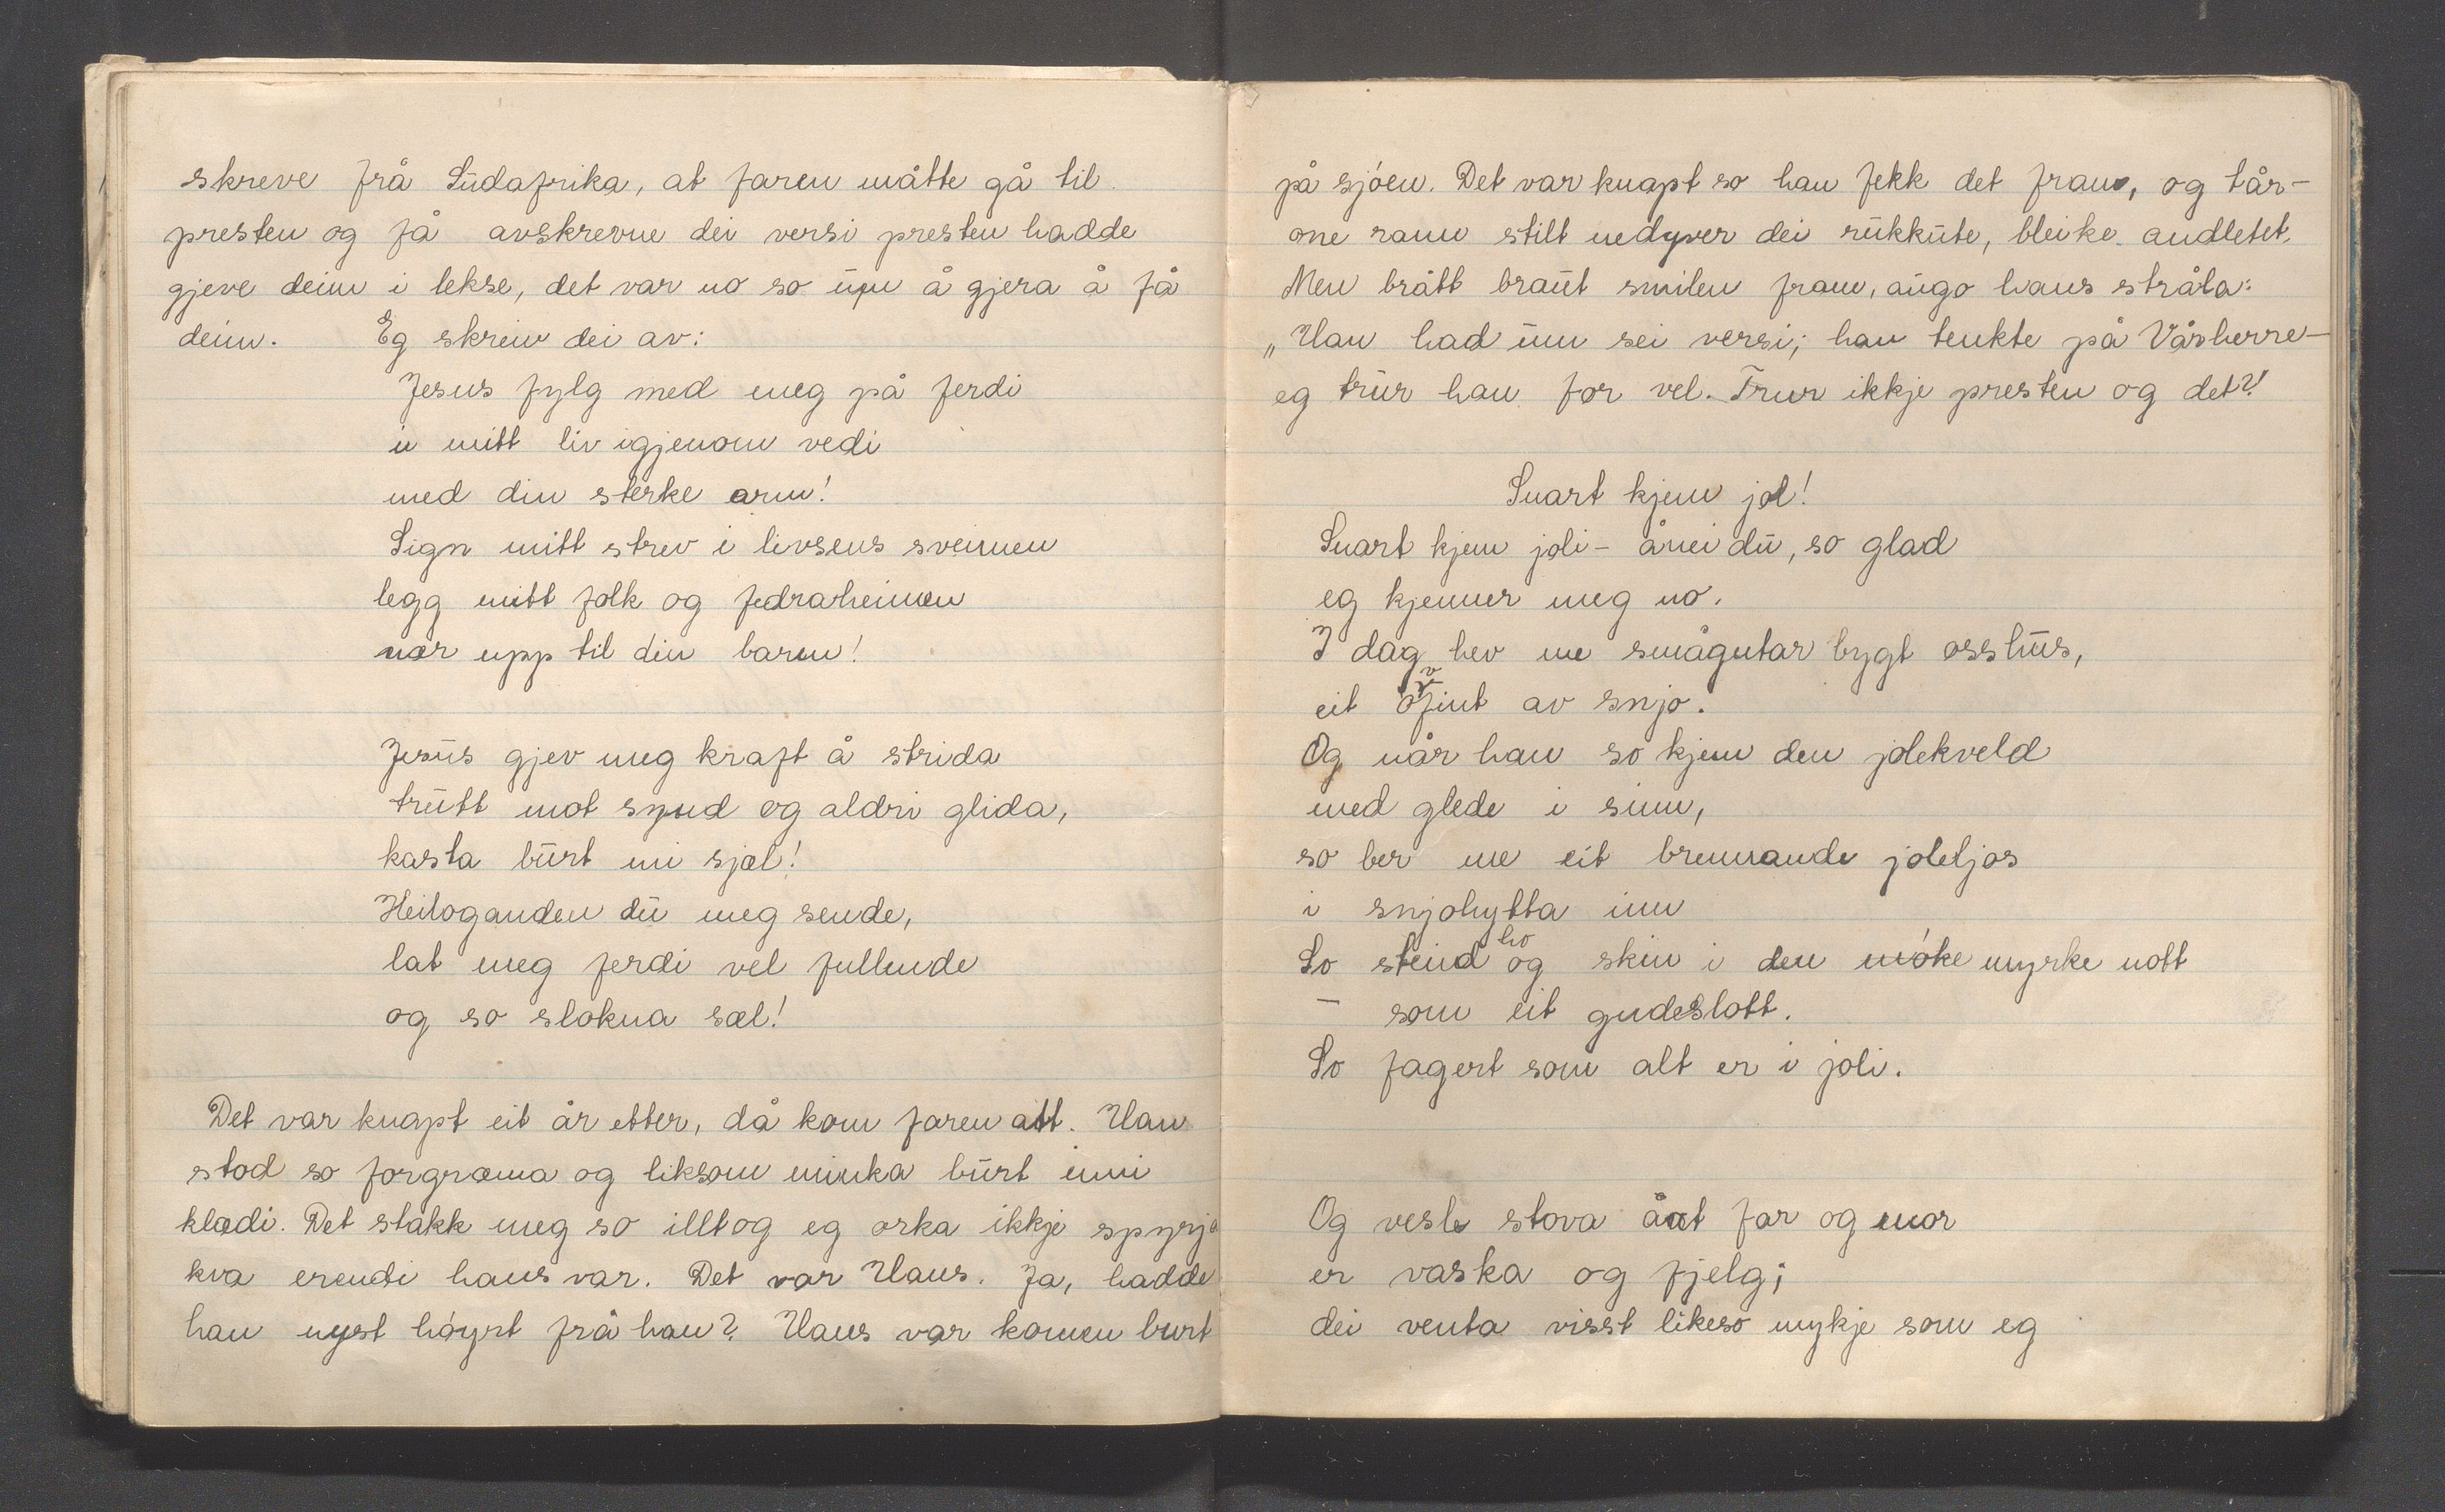 skreve frå Sudafrika, at faren måtte gå til
presten og få avskrevne dei versi presten hadde
gjeve deim i lekse, det var no so um å gjera å få
deim. Eg skreiv dei av:
Jesus fylg med meg på ferdi
u mitt liv igjenom vedi
med din sterke arm!
Sign mitt strev i livsens sveimen
legg mitt folk og fedraheimen
nær upp til din barm!
Jesus gjev meg kraft å strida
trutt mot synd og aldri glida,
kasta burt mi sjæl!
Heiloganden du meg sende,
lat meg ferdi vel fullende
og so slokna sæl!
Det var knapt eit år etter, då kom faren att. Han
stod so forgræma og liksom minka burt inni
klædi. Det stakk meg so illt og eg orka ikkje spyrja
kva erendi hans var. Det var Hans. Ja, hadde
han nyst høyrt frå han? Hans var komen burt
på sjøen. Det var knapt so han fekk det fram, og tår-
one rann stilt nedyver dei rukkute, bleike andletet.
Men brått braut smilen fram, augo hans stråla:
„Han had um sei versi; han tenkte på Vårherre-
eg trur han for vel. Trur ikkje presten og det?"
Snart kjem jol!
Snart kjem joli - ånei du, so glad
eg kjenner meg no.
I dag hev me smågutar bygt oss hus,
eit fint av snjo.
Og når han so kjem den jolekveld
med glede i sinn,
so ber me eit brennande joleljos
i snjohytta inn
So steind ho og skin i den møke myrke nott
- som eit gudeslott.
So fagert som alt er i joli.
Og vesle stova åat far og mor
er vaska og fjelg;
dei venta visst likeso mykje som eg